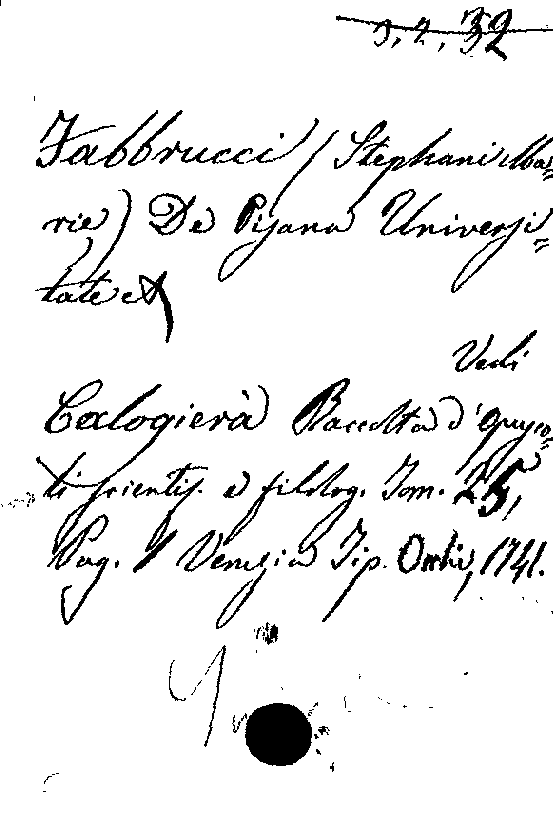 3.2.32
Fabbrucci (Stephani Ma=
rie) De Pisana Universi=
tate et
Vedi
Calogierà Raccolta d'Opusco=
li scientif. e filolog. Tom. 25,
Pag. 1 Venezia Tip. Occhi, 1741.